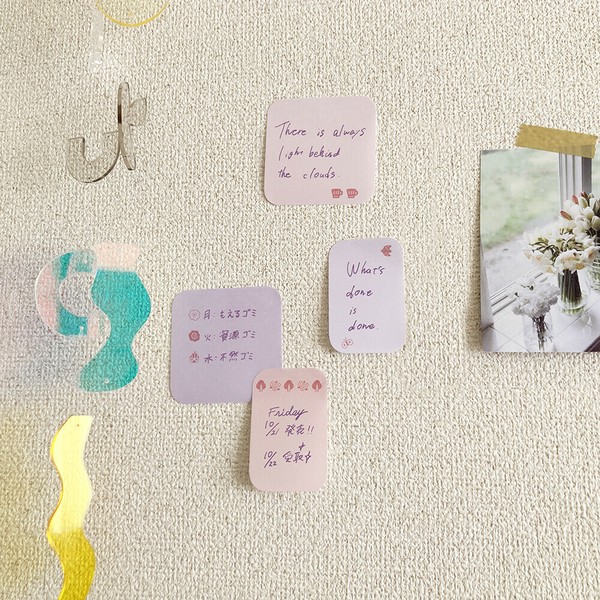 There is always
light behind
the clouds.
What's
done
is
done.
月:もえるゴミ
火:資源ゴミ
水:不燃ゴミ
Friday
10/21 発売!!
10/22 受取